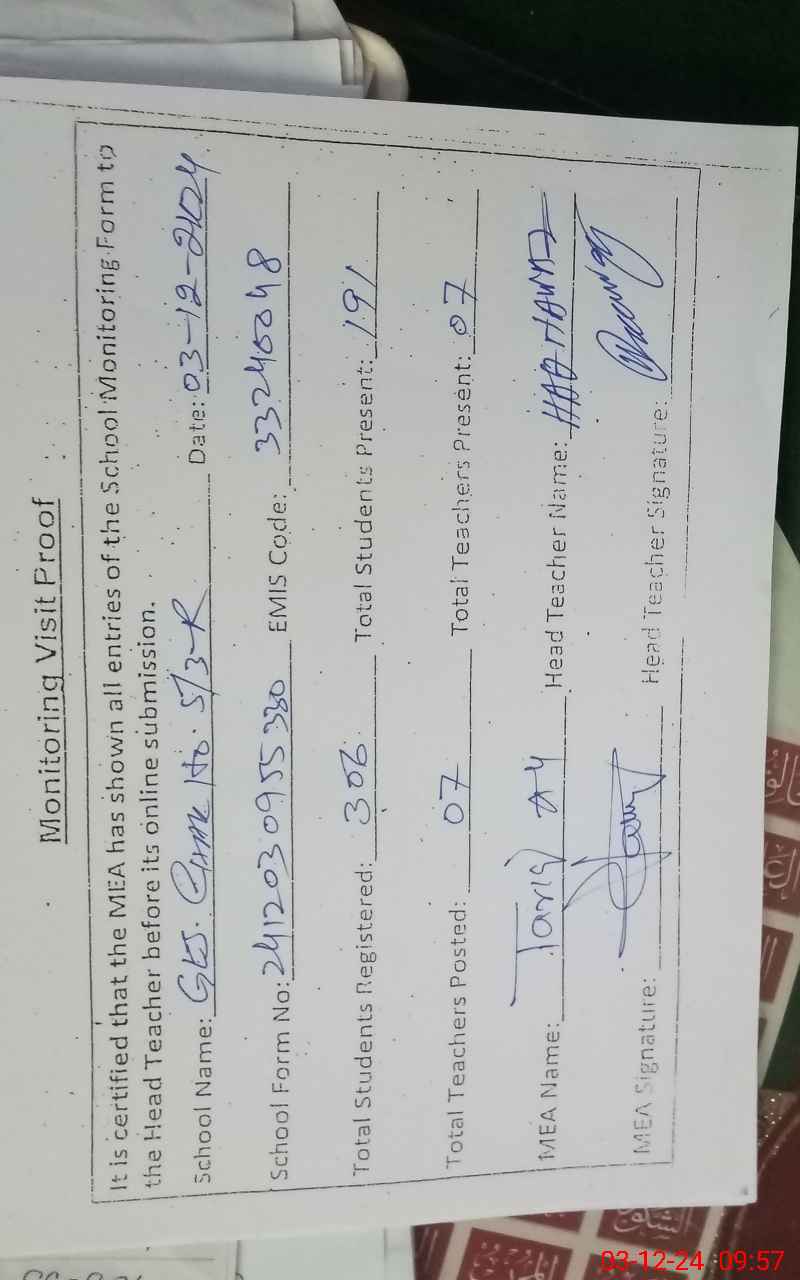 Monitoring Visit Proof
It is certified that the MEA has shown all entries of the School Monitoring Form to
the Head Teacher before its online submission.
School Name: GES. 5/3-R Date: 03-12-2024
School Form No: 241203095530 EMIS Code: 33240048
Total Students Registered: 306 Total Students Present: 191
Total Teachers Posted: 07 Total Teachers Present: 07
MEA Name: Tariq Head Teacher Name: HAQ NAWAZ
MEA Signature: Head Teacher Signature:
03-12-24 09:57